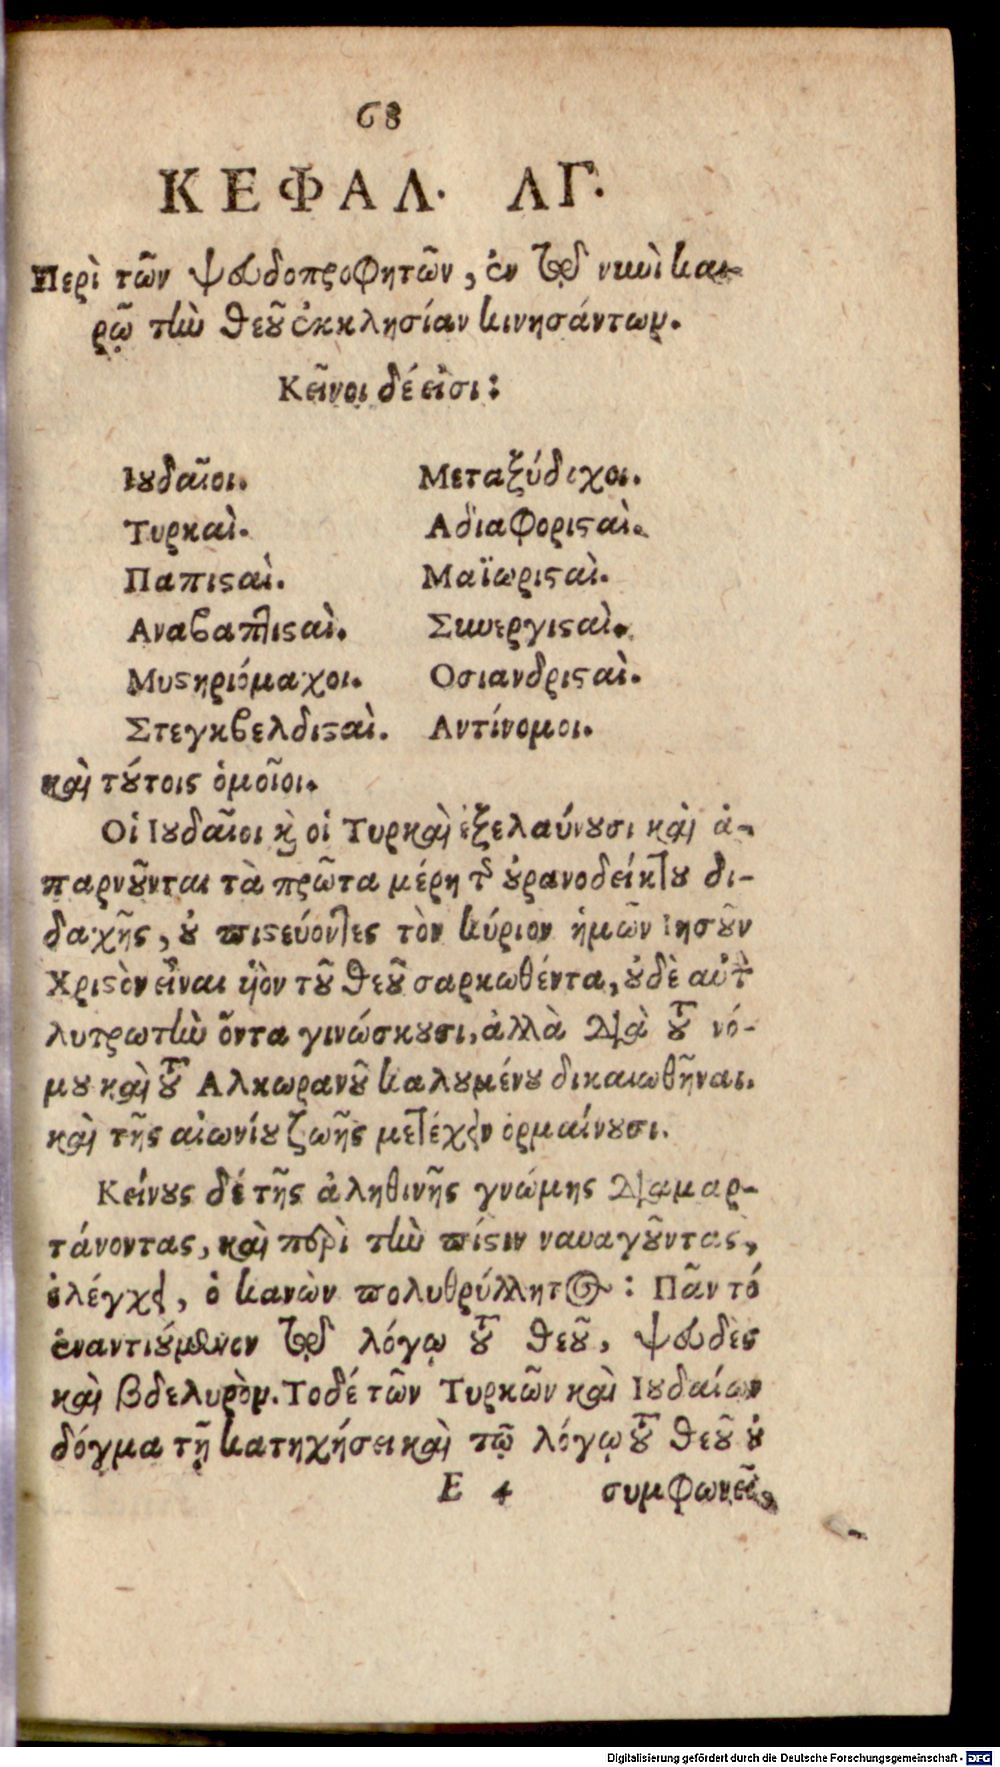 68
ΚΕΦΑΛ. ΛΓ.
Περὶ τῶν ψευδοπροφητῶν, ἐν τῷ νυνὶ και-
ρῷ τὴν θεοῦ ἐκκλησίαν κινησάντων.
Κεῖνοι δέ εἰσι:
Ιουδαῖοι. Μεταξύδοχοι.
Τυρκαὶ. Αδιαφορισαὶ.
Παπισαὶ. Μαϊωρισαὶ.
Αναβαπτισαὶ. Συνεργισαὶ.
Μυστηριόμαχοι. Οσιανδρισαὶ.
Στεγκβελδισαὶ. Αντίνομοι.
καὶ τούτοις ὁμοῖοι.
Οἱ Ιουδαῖοι καὶ οἱ Τυρκαὶ ἐξελαύνουσι καὶ ἀ-
παρνοῦνται τὰ πρῶτα μέρη τῆς οὐρανοδείκτου δι-
δαχῆς, οὐ πιστεύοντες τὸν κύριον ἡμῶν Ιησοῦν
Χριστὸν εἶναι υἱὸν τοῦ θεοῦ σαρκωθέντα, οὐδὲ αὐτὸν
λυτρωτὴν ὄντα γινώσκουσι, ἀλλὰ διὰ τοῦ νό-
μου καὶ τοῦ Αλκωρανοῦ καλουμένου δικαιωθῆναι.
καὶ τῆς αἰωνίου ζωῆς μετέχειν ὁρμαίνουσι.
Κείνους δέ τῆς ἀληθινῆς γνώμης διαμαρ-
τάνοντας, καὶ περὶ τὴν πίστιν ναυαγοῦντας,
ἐλέγχει, ὁ κανὼν πολυθρύλλητος: Πᾶν τό
ἐναντιούμενον τῷ λόγῳ τοῦ θεοῦ, ψευδὲς
καὶ βδελυρὸν. Τοδέ τῶν Τυρκῶν καὶ Ιουδαίων
δόγμα τῇ κατηχήσει καὶ τῷ λόγῳ τοῦ θεοῦ οὐ
E 4 συμφωνεῖ,
Digitalisierung gefördert durch die Deutsche Forschungsgemeinschaft - DFG